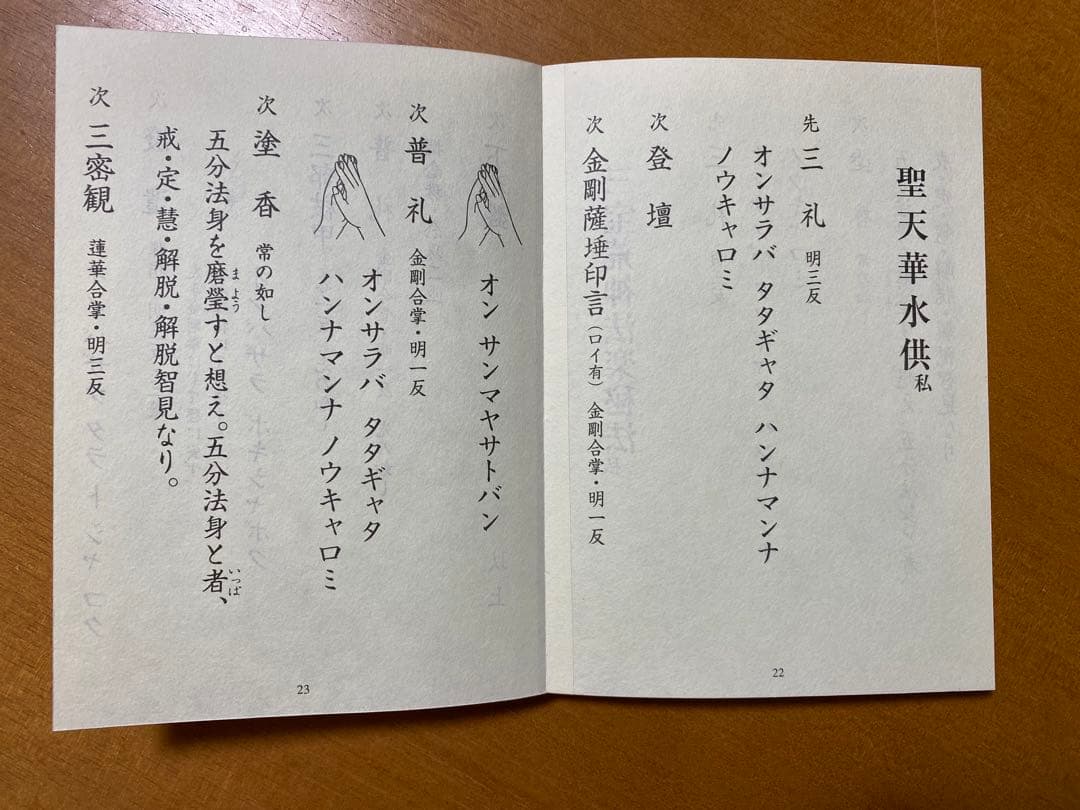 聖天華水供 私
先 三礼 明三反
オンサラバ タタギャタ ハンナマンナ
ノウキャロミ
次 登壇
次 金剛薩埵印言(ロイ有)金剛合掌・明一反
22
オン サンマヤサトバン
次 普礼 金剛合掌・明一反
オンサラバ タタギャタ
ハンナマンナ ノウキャロミ
次 塗香 常の如し
五分法身を磨瑩すと想え。五分法身と者、
まよう
いっぱ
戒・定・慧・解脱・解脱智見なり。
次 三密観 蓮華合掌・明三反
23